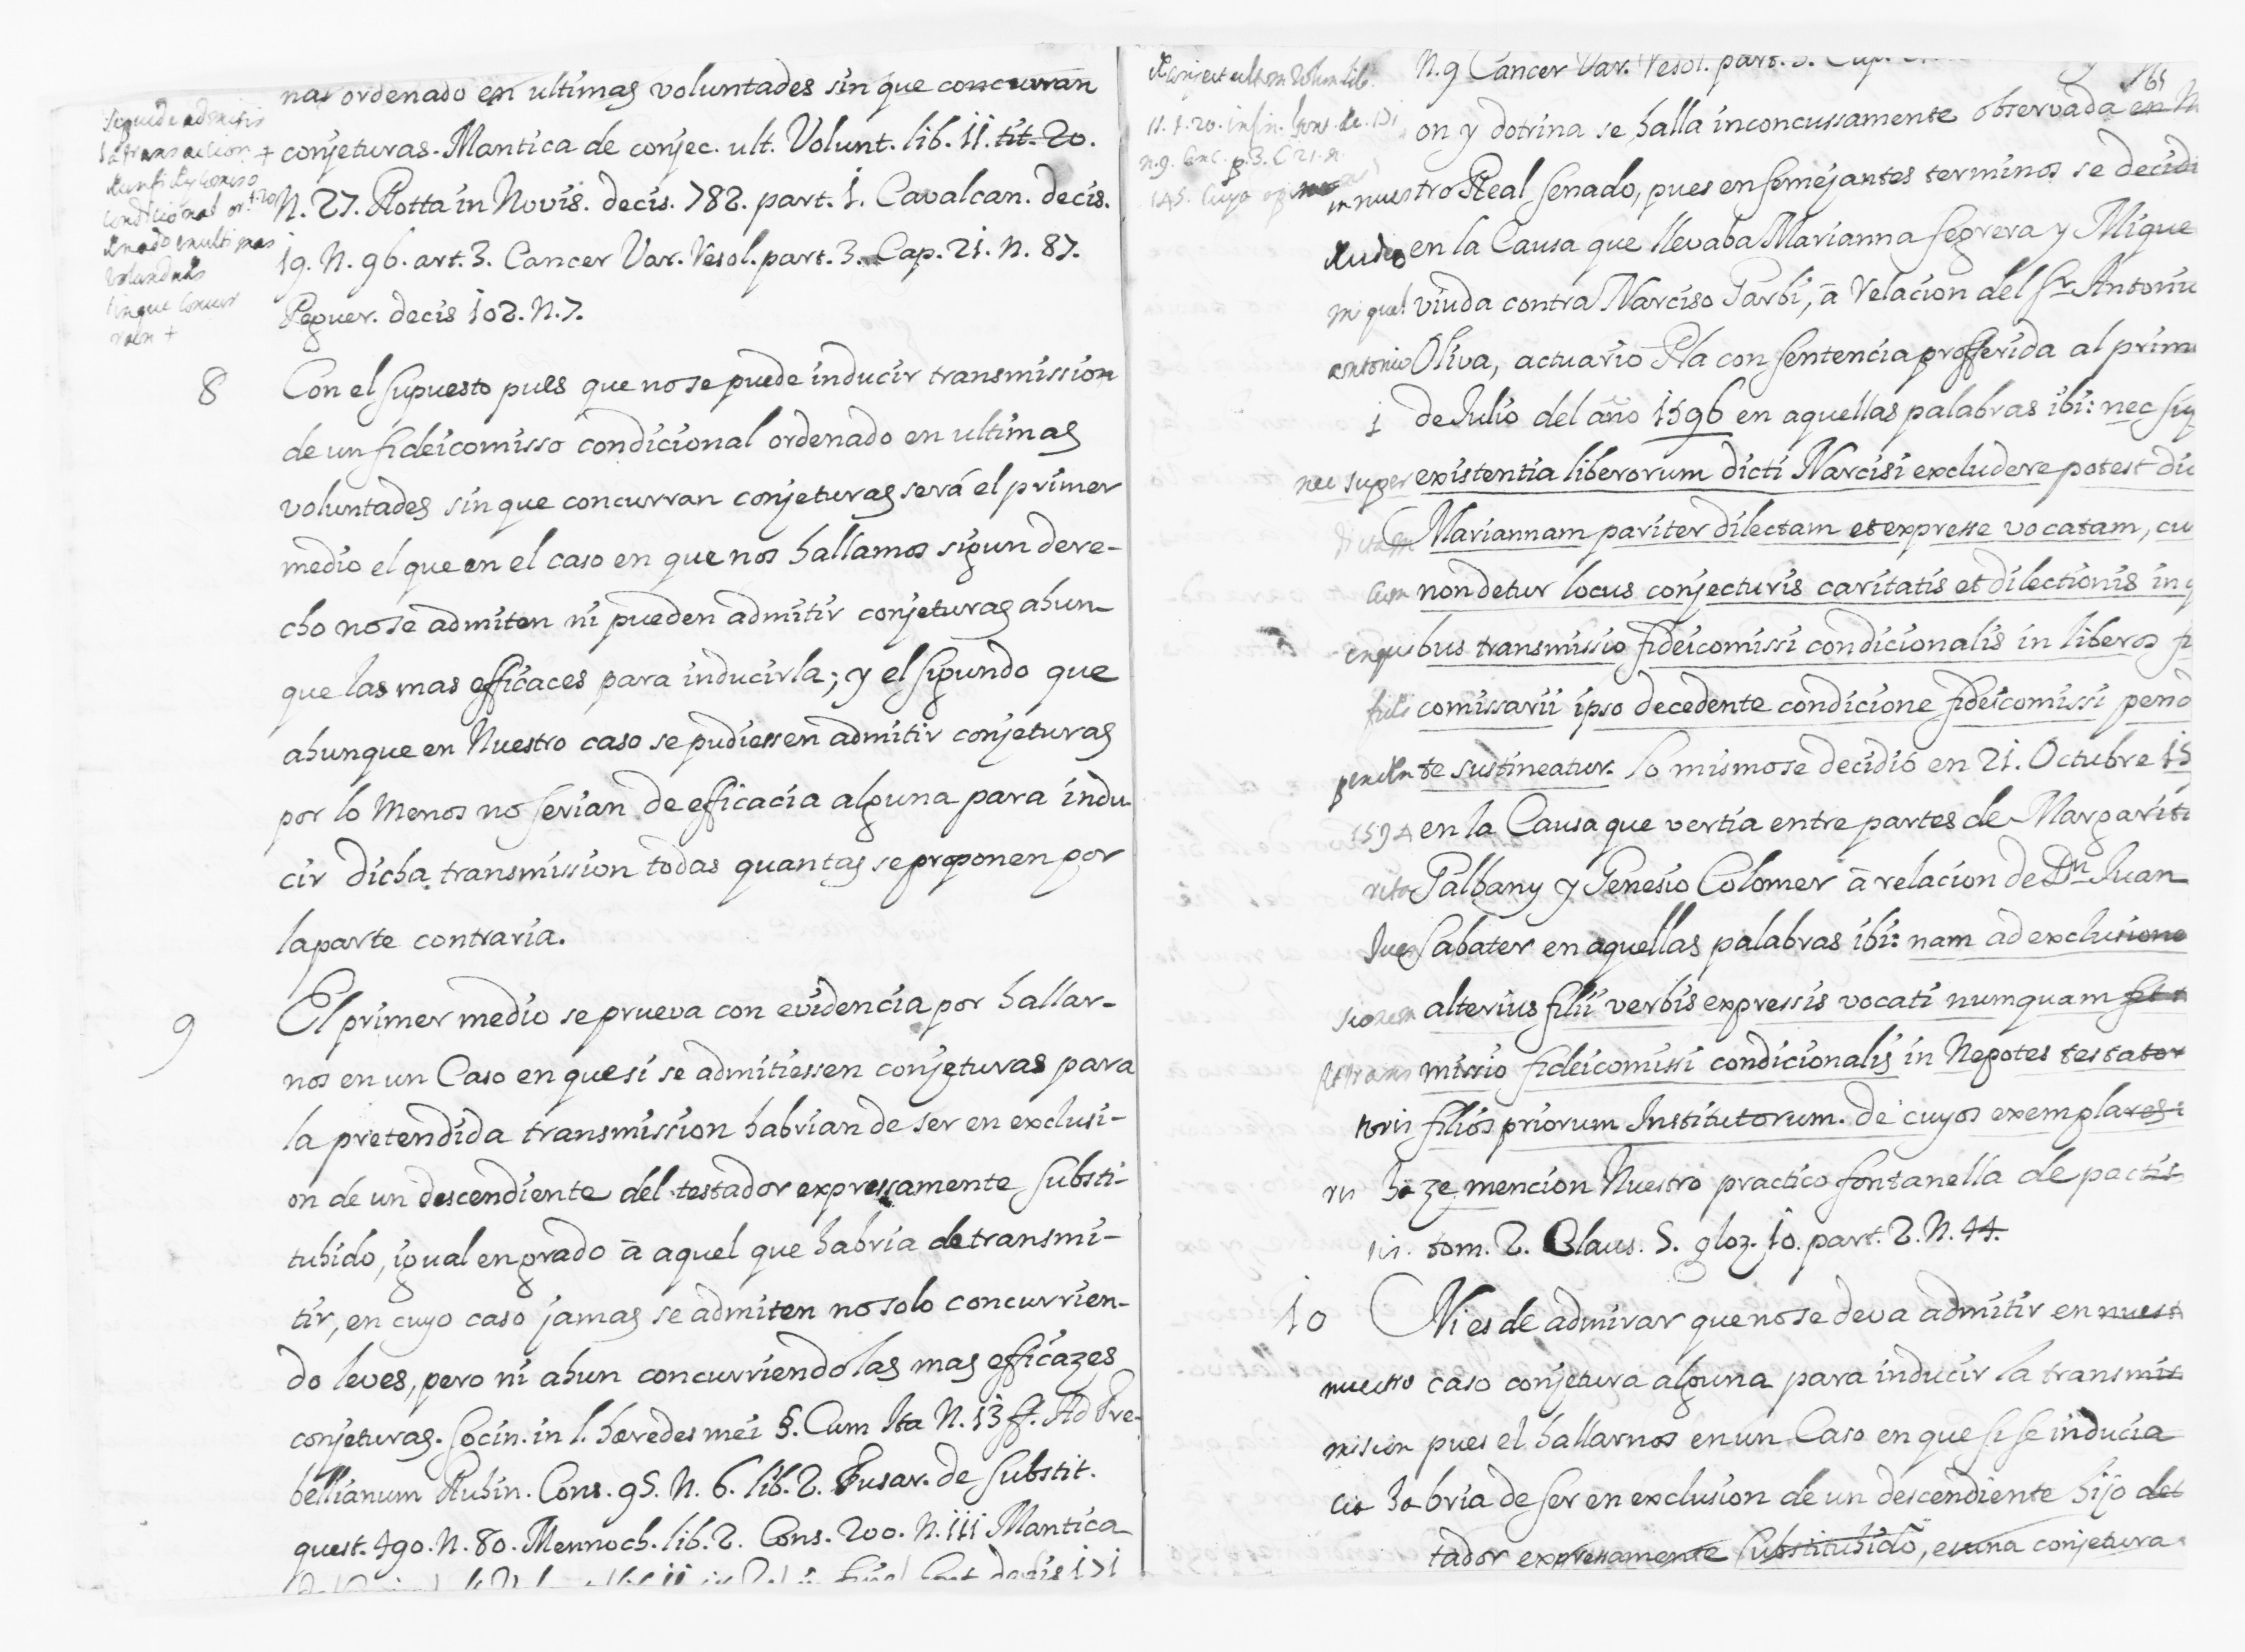 nas ordenado en ultimas voluntades sin que concurran
conjeturas. Mantica de conjec. ult. Volunt. lib. 11. tit. 20.
N. 27. Rotta in Novis. decis. 782. part. 1. Cavalcan. decis.
19. N. 96. art. 3. Cancer Var. Resol. part. 3. Cap. 21. N. 87.
Peguer. decis 102. N. 7.
8 Con el supuesto pues que no se puede inducir transmission
de un fideicomisso condicional ordenado en ultimas
voluntades sin que concurran conjeturas será el primer
medio el que en el caso en que nos hallamos sigun dere-
cho no se admiten ni pueden admitir conjeturas ahun-
que las mas efficaces para inducirla; y el sigundo que
ahunque en Nuestro caso se pudiessen admitir conjeturas
por lo Menos no serian de efficacia alguna para indu-
cir dicha transmission todas quantas se proponen por
la parte contraria.
9 El primer medio se prueva con evidencia por hallar-
nos en un Caso en que si se admitiessen conjeturas para
la pretendida transmission habrian de ser en exclusi-
on de un descendiente del testador expressamente substi-
tuhido, igual en grado à aquel que habria de transmi-
tir, en cuyo caso jamas se admiten no solo concurrien-
do leves, pero ni ahun concurriendo las mas efficazes
conjeturas. Socin. in l. hæredes mei §. Cum Ita N. 13 ff. Ad Tre-
bellianum Rubin. Cons. 95. N. 6. lib. 2. Fusar. de Substit.
quest. 490. N. 80. Mennoch. lib. 2. Cons. 200. N. 111 Mantica
N. 9 Cancer Var. Resol. part. 3. Cap.
on y dotrina se halla inconcussamente observada en
nuestro Real Senado, pues en semejantes terminos se decidi
en la Causa que llevaba Marianna Segrera y Mique
miquel viuda contra Narciso Garbi, à relacion del Sr. Antoniu
antonio Oliva, actuario Pla con sentencia profferida al prim
1 de Julio del año 1596 en aquellas palabras ibi: nec sup
nec super existentia liberorum dicti Narcisi excludere potest dic
dictam Mariannam pariter dilectam et expresse vocatam, cu
cum non detur locus conjecturis caritatis et dilectionis in q
in quibus transmissio fideicomissi condicionalis in liberos fi
fidei comissarii ipso decedente condicione fideicomissi pend
pendente sustineatur. Lo mismo se decidió en 21. Octubre 15
1594 en la Causa que vertia entre partes de Margarita
rita Galbany y Genesio Colomer à relacion de Dn. Juan
Juan Sabater en aquellas palabras ibi: nam ad exclusione
sionem alterius filii verbis expressis vocati numquam fit
fit transmissio fideicomissi condicionalis in Nepotes testator
toris filios priorum Institutorum. de cuyos exemplares
res haze mencion Nuestro practico Fontanella de pactis
tom. 2. Claus. 5. gloz. 10. part. 2. N. 44.
10 Ni es de admirar que no se deva admitir en nuest
nuestro caso conjetura alguna para inducir la transmis
mision pues el hallarnos en un Caso en que si se inducia
cia habria de ser en exclusion de un descendiente hijo del
tador expressamente substituhido, es una conjetura